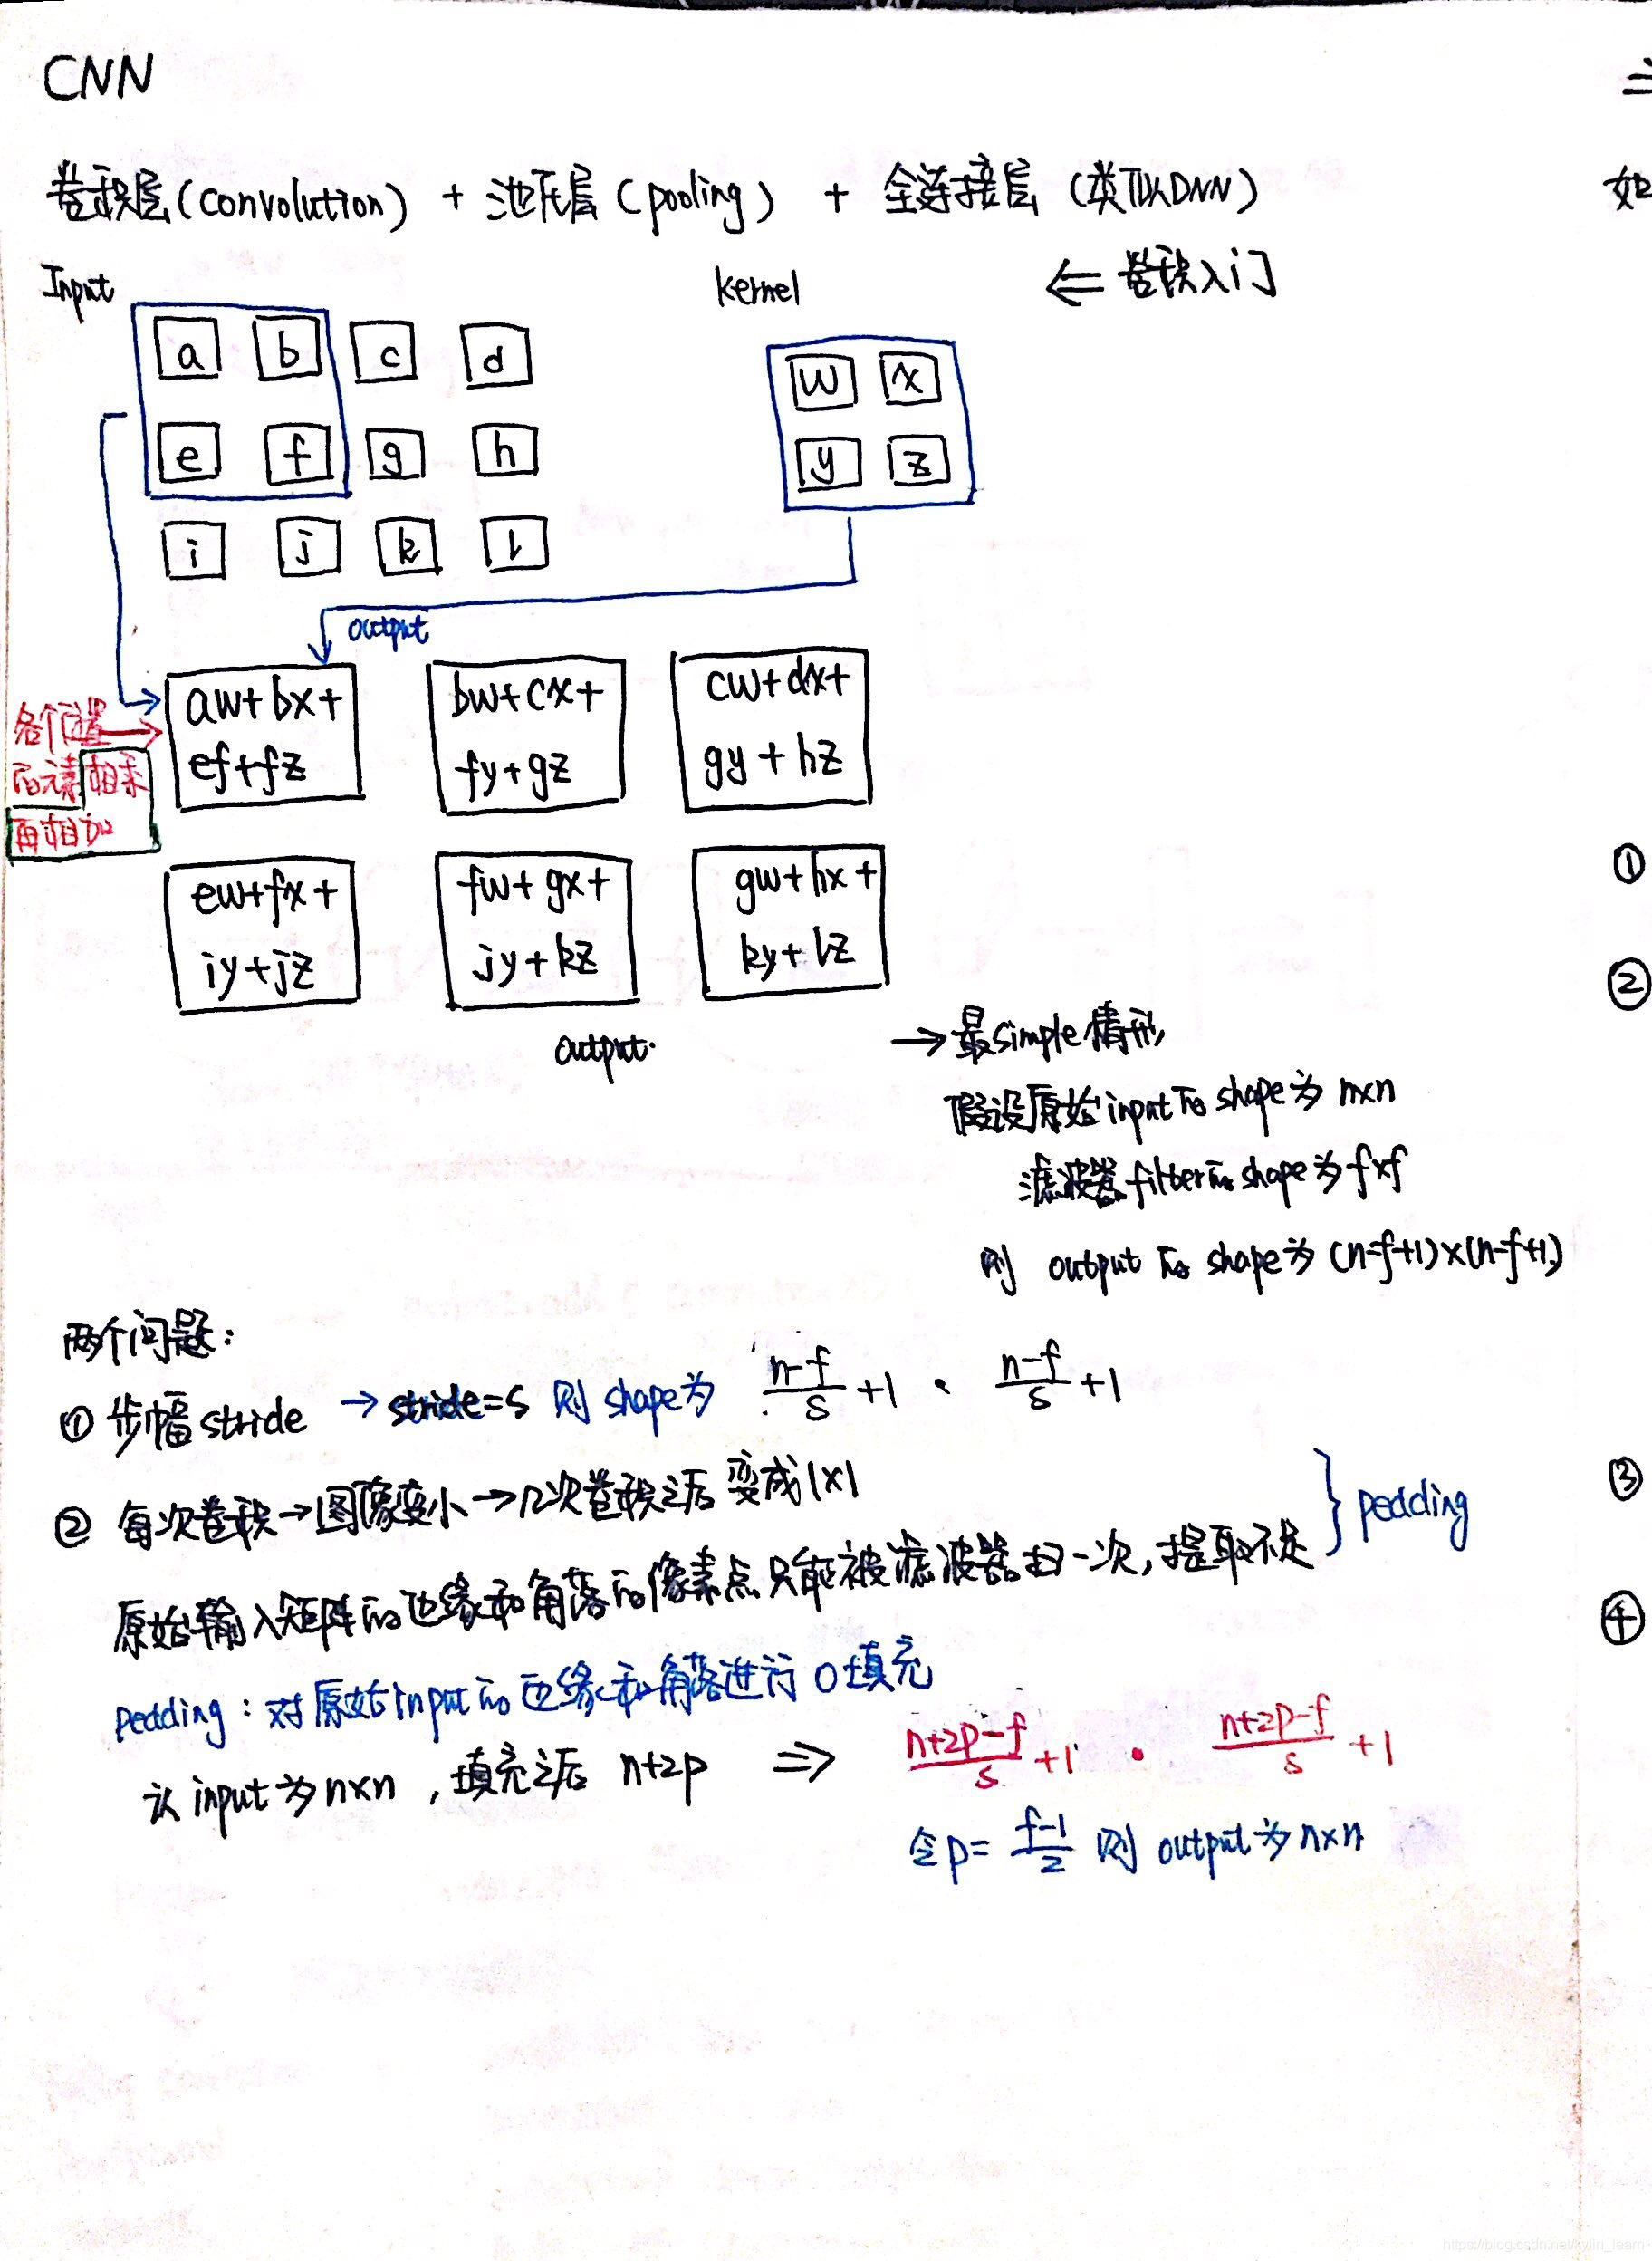 CNN
卷积层(convolution) + 池化层(pooling) + 全连接层(类似DNN)
如
Input
kernel
⇐ 卷积入门
a b c d
w x
e f g h
y z
i j k l
output
aw+bx+
bw+cx+
cw+dx+
各个位置
ef+fz
fy+gz
gy+hz
的元素相乘
再相加
ew+fx+
fw+gx+
gw+hx+
①
iy+jz
jy+kz
ky+lz
②
output.
→最simple情形
假设原始input的shape为n×n
滤波器filter的shape为f×f
则 output的shape为(n-f+1)×(n-f+1)
两个问题:
① 步幅stride → stride=s 则 shape为 n-f/s +1 · n-f/s +1
② 每次卷积→图像变小→几次卷积之后 变成1×1
③
原始输入矩阵的边缘和角落的像素点只能被滤波器扫一次,提取不足
} pedding
④
pedding:对原始input的边缘和角落进行0填充
input为n×n,填充之后 n+2p ⇒ n+2p-f/s +1 · n+2p-f/s +1
令p= f-1/2 则 output为n×n